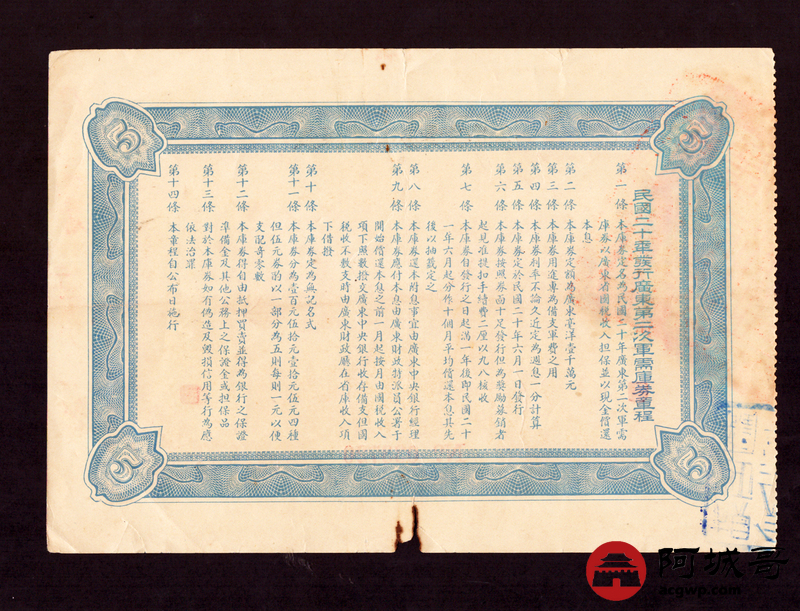 民國二十年發行廣東第二次軍需庫券章程
第一條 本庫券定名為民國二十年廣東第二次軍需
庫券以廣東省國稅收入担保並以現金償還
本息
第二條 本庫券定額為廣東毫洋壹千萬元
第三條 本庫券用途專為備支軍費之用
第四條 本庫券利率不論久近定為週息一分計算
第五條 本庫券定於民國二十年六月一日發行
第六條 本庫券按照券面十足發行但為獎勵募銷者
起見准提扣手續費二厘以九八核收
第七條 本庫券自發行之日起滿一年後即民國二十
一年六月起分作十個月平均償還本息其先
後以抽籤定之
第八條 本庫券還本附息事宜由廣東中央銀行經理
第九條 本庫券應付本息由廣東財政特派員公署于
開始償還本息之前一月起按月由國稅收入
項下照數撥交廣東中央銀行收存備支但國
稅收不敷支時由廣東財政廳在省庫收入項
下借撥
第十條 本庫券定為無記名式
第十一條 本庫券分為壹百元伍拾元壹拾元伍元四種
但伍元券的以一部分為五則每則一元以便
支配奇零數
第十二條 本庫券得自由抵押買賣並得為銀行之保證
準備金及其他公務上之保證金或担保品
第十三條 對於本庫券如有偽造及毀損信用等行為應
依法治罪
第十四條 本章程自公布日施行
5
5
5
5
阿城哥
acgwp.com